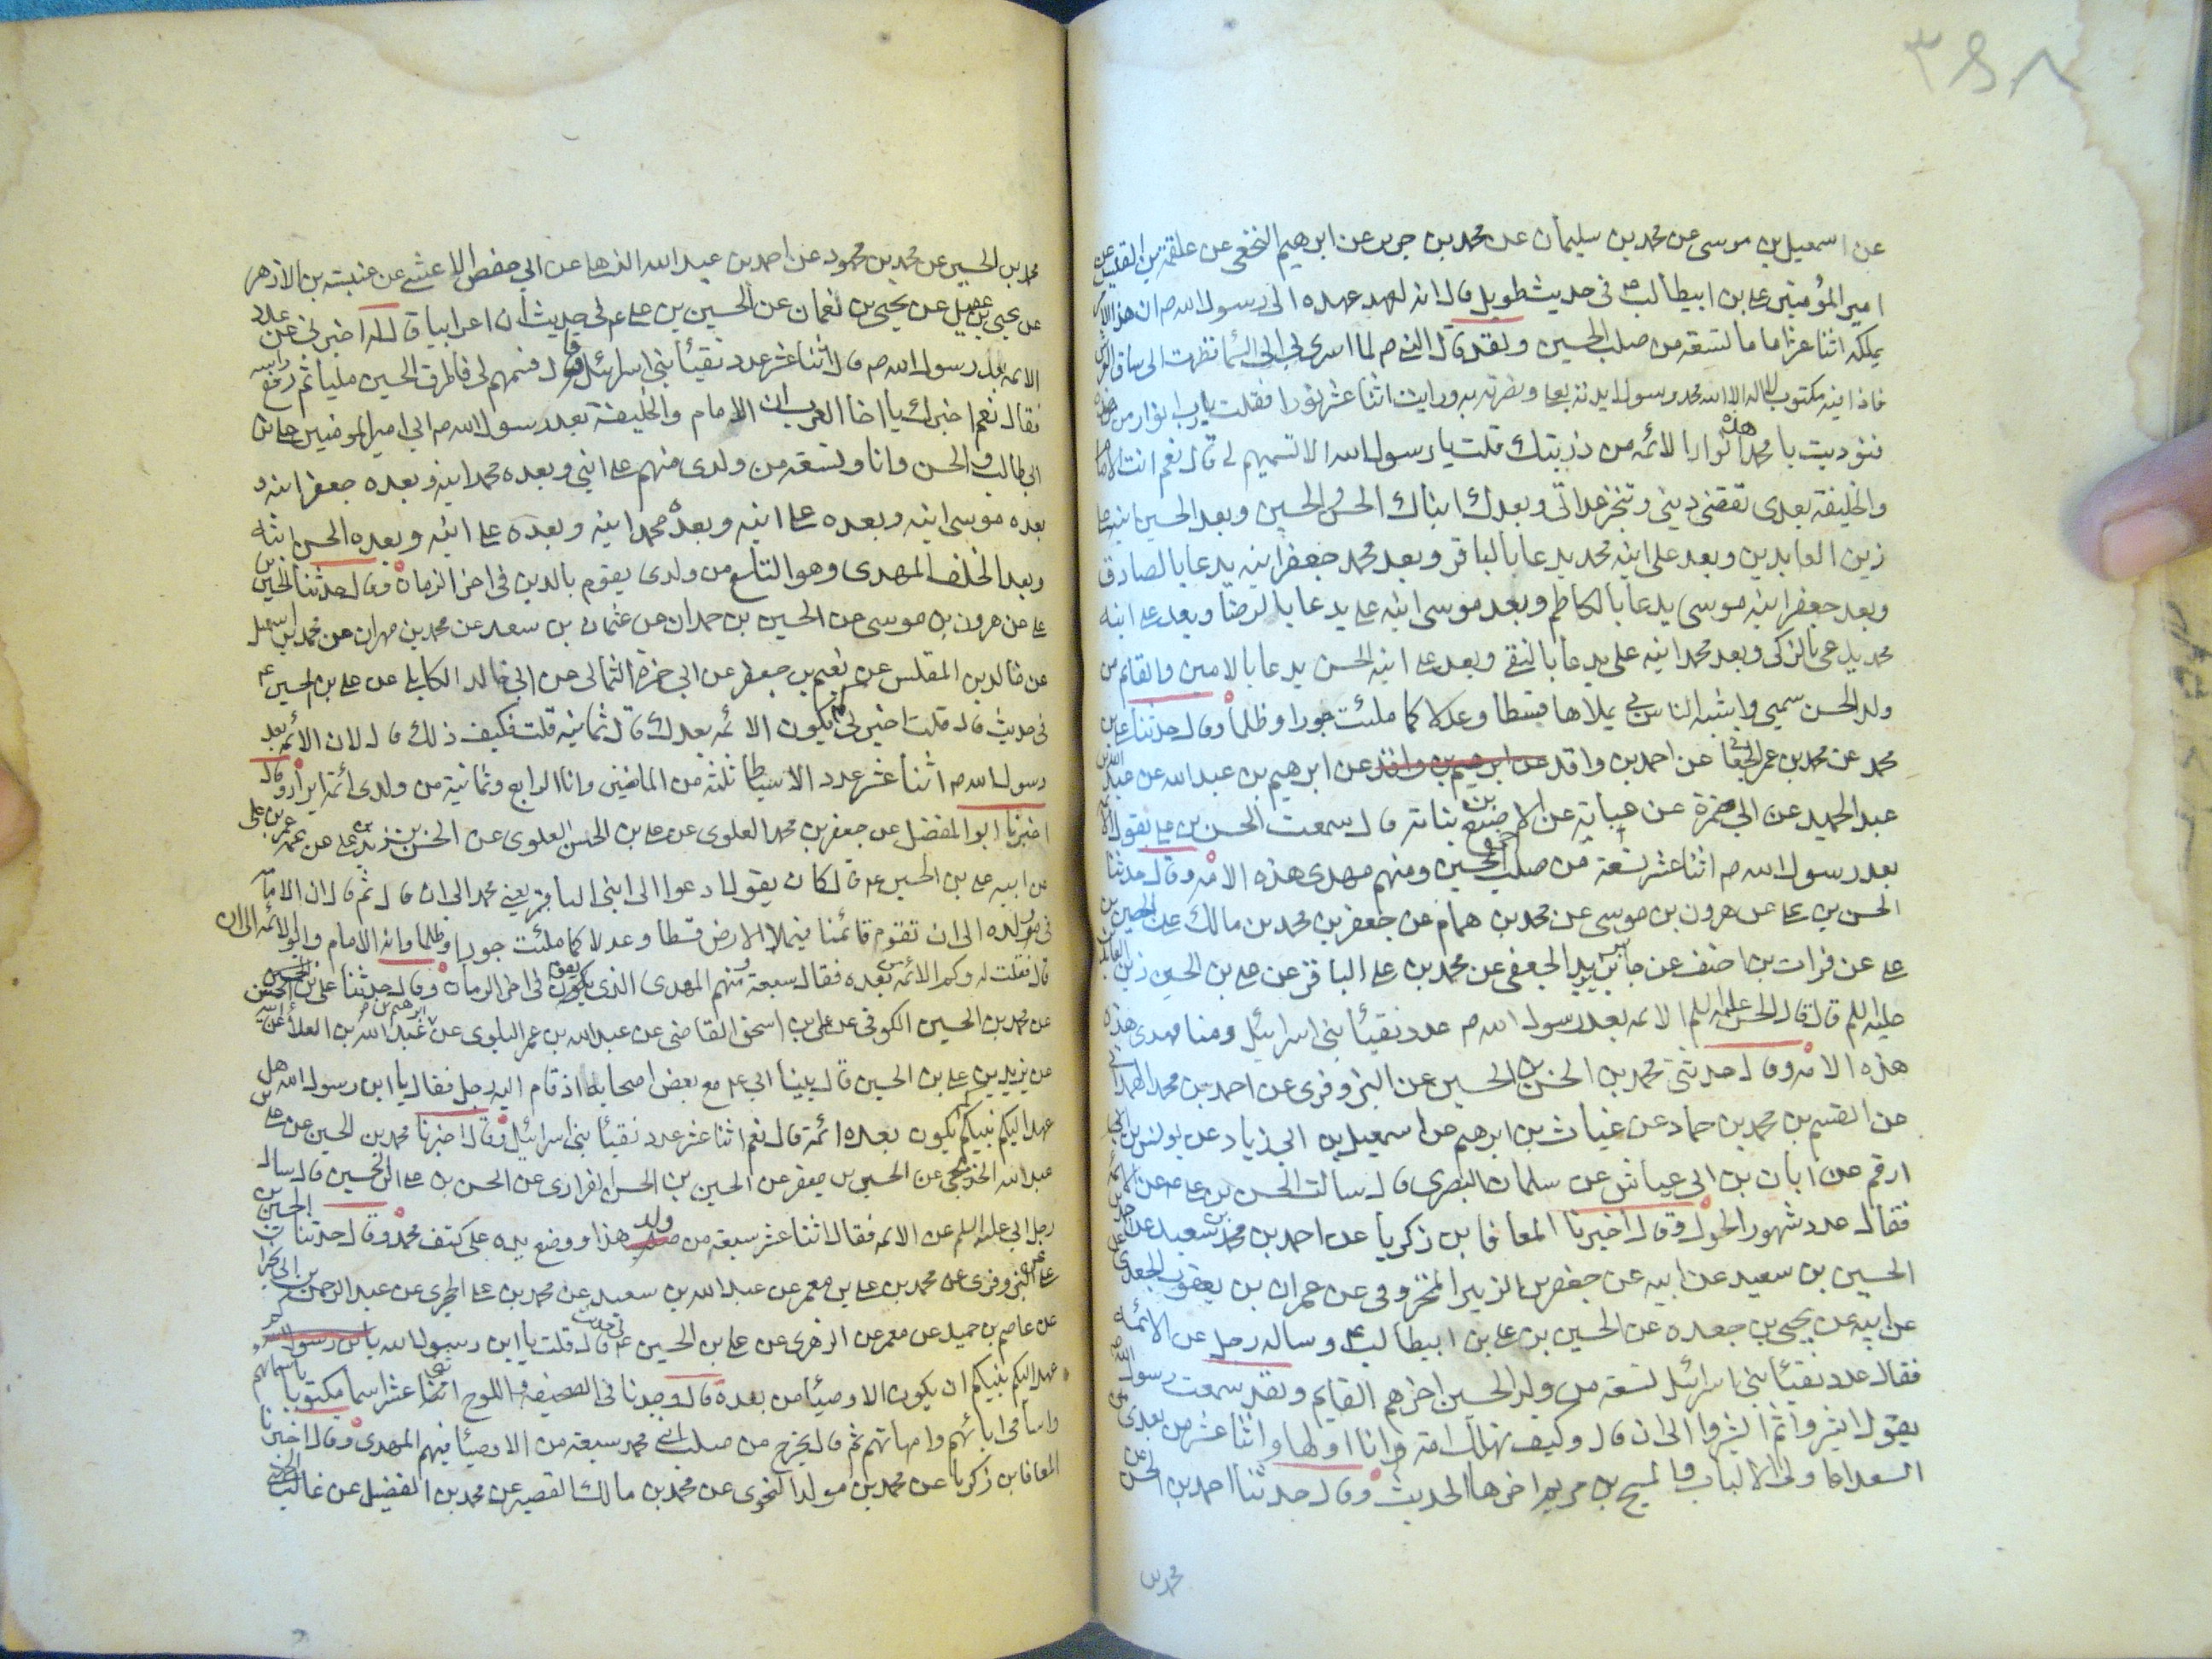 ٣٨٨
عن اسمعيل بن موسى عن محمد بن سليمان عن محمد بن جرير عن ابرهيم النخعى عن علقمة بن القيس عن
امير المؤمنين على بن ابيطالب ع فى حديث طويل قال انه لعهد عهده الى رسول الله ص ان هذا الامر
يملكه اثنا عشر اماما تسعة من صلب الحسين ولقد قال النبى ص لما اسرى بى الى السما نظرت الى ساق العرش
فاذا فيه مكتوب لا اله الا الله محمد رسول الله ايدته بعلى ونصرته به ورايت اثنا عشر نورا فقلت يا رب انوار من هذه
فنوديت يا محمد هذه انوار الائمه من ذريتك قلت يا رسول الله الا تسميهم لى قال نعم انت الامام
والخليفة بعدى تقضى دينى وتنجز عداتى وبعدك ابناك الحسن والحسين وبعد الحسين ابنه على
زين العابدين وبعد على ابنه محمد يدعا بالباقر وبعد محمد جعفر ابنه يدعا بالصادق
وبعد جعفر ابنه موسى يدعا بالكاظم وبعد موسى ابنه على يدعا بالرضا وبعد على ابنه
محمد يدعى بالزكى وبعد محمد ابنه على يدعا بالنقى وبعد على ابنه الحسن يدعا بالامين والقائم من
ولد الحسن سميى واشبه الناس بى يملاها قسطا وعدلا كما ملئت جورا وظلما وقال حدثنا على بن
محمد عن محمد بن عمر الجعابى عن احمد بن واقد عن ابرهيم بن واقد عن ابرهيم بن عبد الله عن عبد الله بن
عبد الحميد عن ابى حمزة عن عباية عن الاصبغ بن نباته قال سمعت الحسن بن على يقول الائمة
بعد رسول الله ص اثنا عشر تسعة من صلب اخى الحسين ومنهم مهدى هذه الامه وقال حدثنا
الحسن بن على عن هرون بن موسى عن محمد بن همام عن جعفر بن محمد بن مالك عن الحسين بن
على عن فرات بن احنف عن جابر بن يزيد الجعفى عن محمد بن على الباقر عن على بن الحسين زين العابدين
عليه السلم قال قال الحسن عليه السلم الائمه بعد رسول الله ص عدد نقبئا بنى اسرائيل ومنا مهدى هذه
هذه الامه وقال حدثنى محمد بن الحسن بن الحسين عن البزوفرى عن احمد بن محمد الهمدانى
عن القسم بن محمد بن حماد عن غياث بن ابرهيم عن اسمعيل بن ابى زياد عن يونس بن
ارقم عن ابان بن ابى عياش عن سلمان البصرى قال سالت الحسن بن على ع عن الائمه
فقال عدد شهور الحول وقال اخبرنا المعافا بن زكريا عن احمد بن محمد بن سعيد عن
الحسين بن سعيد عن ابيه عن جعفر بن الزبير المخزومى عن عمران بن يعقوب الجعدى
عن ابيه عن يحيى بن جعده عن الحسين بن على بن ابيطالب ع وساله رجل عن الائمه
فقال عدد نقبئا بنى اسرائيل تسعة من ولد الحسين اخرهم القايم ولقد سمعت رسول الله ص
يقول ابشروا ثم ابشروا الى ان قال وكيف تهلك امة وانا اولها واثنا عشر من بعدى من
السعدا واولى الالباب والمسيح بن مريم اخرها الحديث وقال حدثنا احمد بن الحسن
محمد بن
محمد بن الحسين عن محمد بن محمود عن احمد بن عبد الله الذهلى عن ابى حفص الاعشى عن عنبسة بن الازهر
عن يحيى بن عقيل عن يحيى بن نعمان عن الحسين بن على ع فى حديث ان اعرابيا قال له اخبرنى عن عدد
الائمه بعد رسول الله ص قال اثنا عشر عدد نقبئا بنى اسرائيل قال فسمهم لى فاطرق الحسين مليا ثم رفع راسه
فقال نعم اخبرك يا اخا العرب ان الامام والخليفة بعد رسول الله ص ابى امير المومنين على بن
ابى طالب والحسن وانا وتسعة من ولدى منهم على ابنى وبعده محمد ابنه وبعده جعفر ابنه و
بعده موسى ابنه وبعده على ابنه وبعده محمد ابنه وبعده على ابنه وبعده الحسن ابنه
وبعد الخلف المهدى وهو التاسع من ولدى يقوم بالدين فى اخر الزمان وقال حدثنا الحسين بن
على عن هرون بن موسى عن الحسين بن حمدان عن عثمان بن سعد عن محمد بن مهران عن محمد بن اسمعيل
عن خالد بن المفلس عن نعيم بن جعفر عن ابى حمزة الثمالى عن ابى خالد الكابلى عن على بن الحسين ع
فى حديث قال قلت اخبرنى كم يكون الائمه بعدك قال ثمانيه قلت فكيف ذلك قال لان الائمه بعد
رسول الله ص اثنا عشر عدد الاسباط ثلثة من الماضين وانا الرابع وثمانية من ولدى ائمة ابرار وقال
اخبرنا ابو المفضل عن جعفر بن محمد العلوى عن على بن الحسن العلوى عن الحسن بن زيد بن على عن عمه عمر بن على
عن ابيه على بن الحسين ع قال كان يقول ادعوا الى ابنى الباقر يعنى محمد الى ان قال ثم قال ان الامامة
فى ولده الى ان تقوم قائمنا فيملا الارض قسطا وعدلا كما ملئت جورا وظلما وانه الامام وابو الائمه الى ان
قال فقلت له وكم الائمه من بعده فقال سبعة ومنهم المهدى الذى يقوم فى اخر الزمان وقال حدثنا على بن الحسن
عن محمد بن الحسين الكوفى عن على بن اسحق القاضى عن عبد الله بن عمر البلوى عن ابرهيم بن عبد الله بن العلا عن ابيه
عن يزيد بن على بن الحسين قال بينا ابى ع مع بعض اصحابه اذ قام اليه رجل فقال يا ابن رسول الله هل
عهد اليكم نبيكم كم يكون بعده ائمة قال نعم اثنا عشر عدد نقبئا بنى اسرائيل وقال اخبرنا محمد بن الحسين عن على بن
عبد الله الخديجى عن الحسين بن جعفر عن الحسين بن الحسن الفزارى عن الحسن بن على ابن الحسين قال سال
رجل ابى عليه السلم عن الائمه فقال اثنا عشر سبعة من صلب ولد هذا ووضع يده على كتف محمد وقال حدثنا الحسين بن
على عن البزوفرى عن محمد بن على بن معمر عن عبد الله بن سعيد عن محمد بن على الطبرى عن عبد الرحمن بن ابى نجران
عن عاصم بن حميد عن معمر عن الزهرى عن على بن الحسين ع فى حديث قال قلت يا ابن رسول الله يا ابن رسول الله
عهد اليكم نبيكم ان يكون الاوصيئا من بعده قال وجدنا فى الصحيفه واللوح اثنى عشر اسما مكتوبا باسمائهم
واسامى ابائهم وامهاتهم ثم قال يخرج من صلب ابنى محمد سبعة من الاوصيئا فيهم المهدى وقال اخبرنا
المعافا بن زكريا عن محمد بن مولد النحوى عن محمد بن مالك القصيرى عن محمد بن الفضيل عن غالب